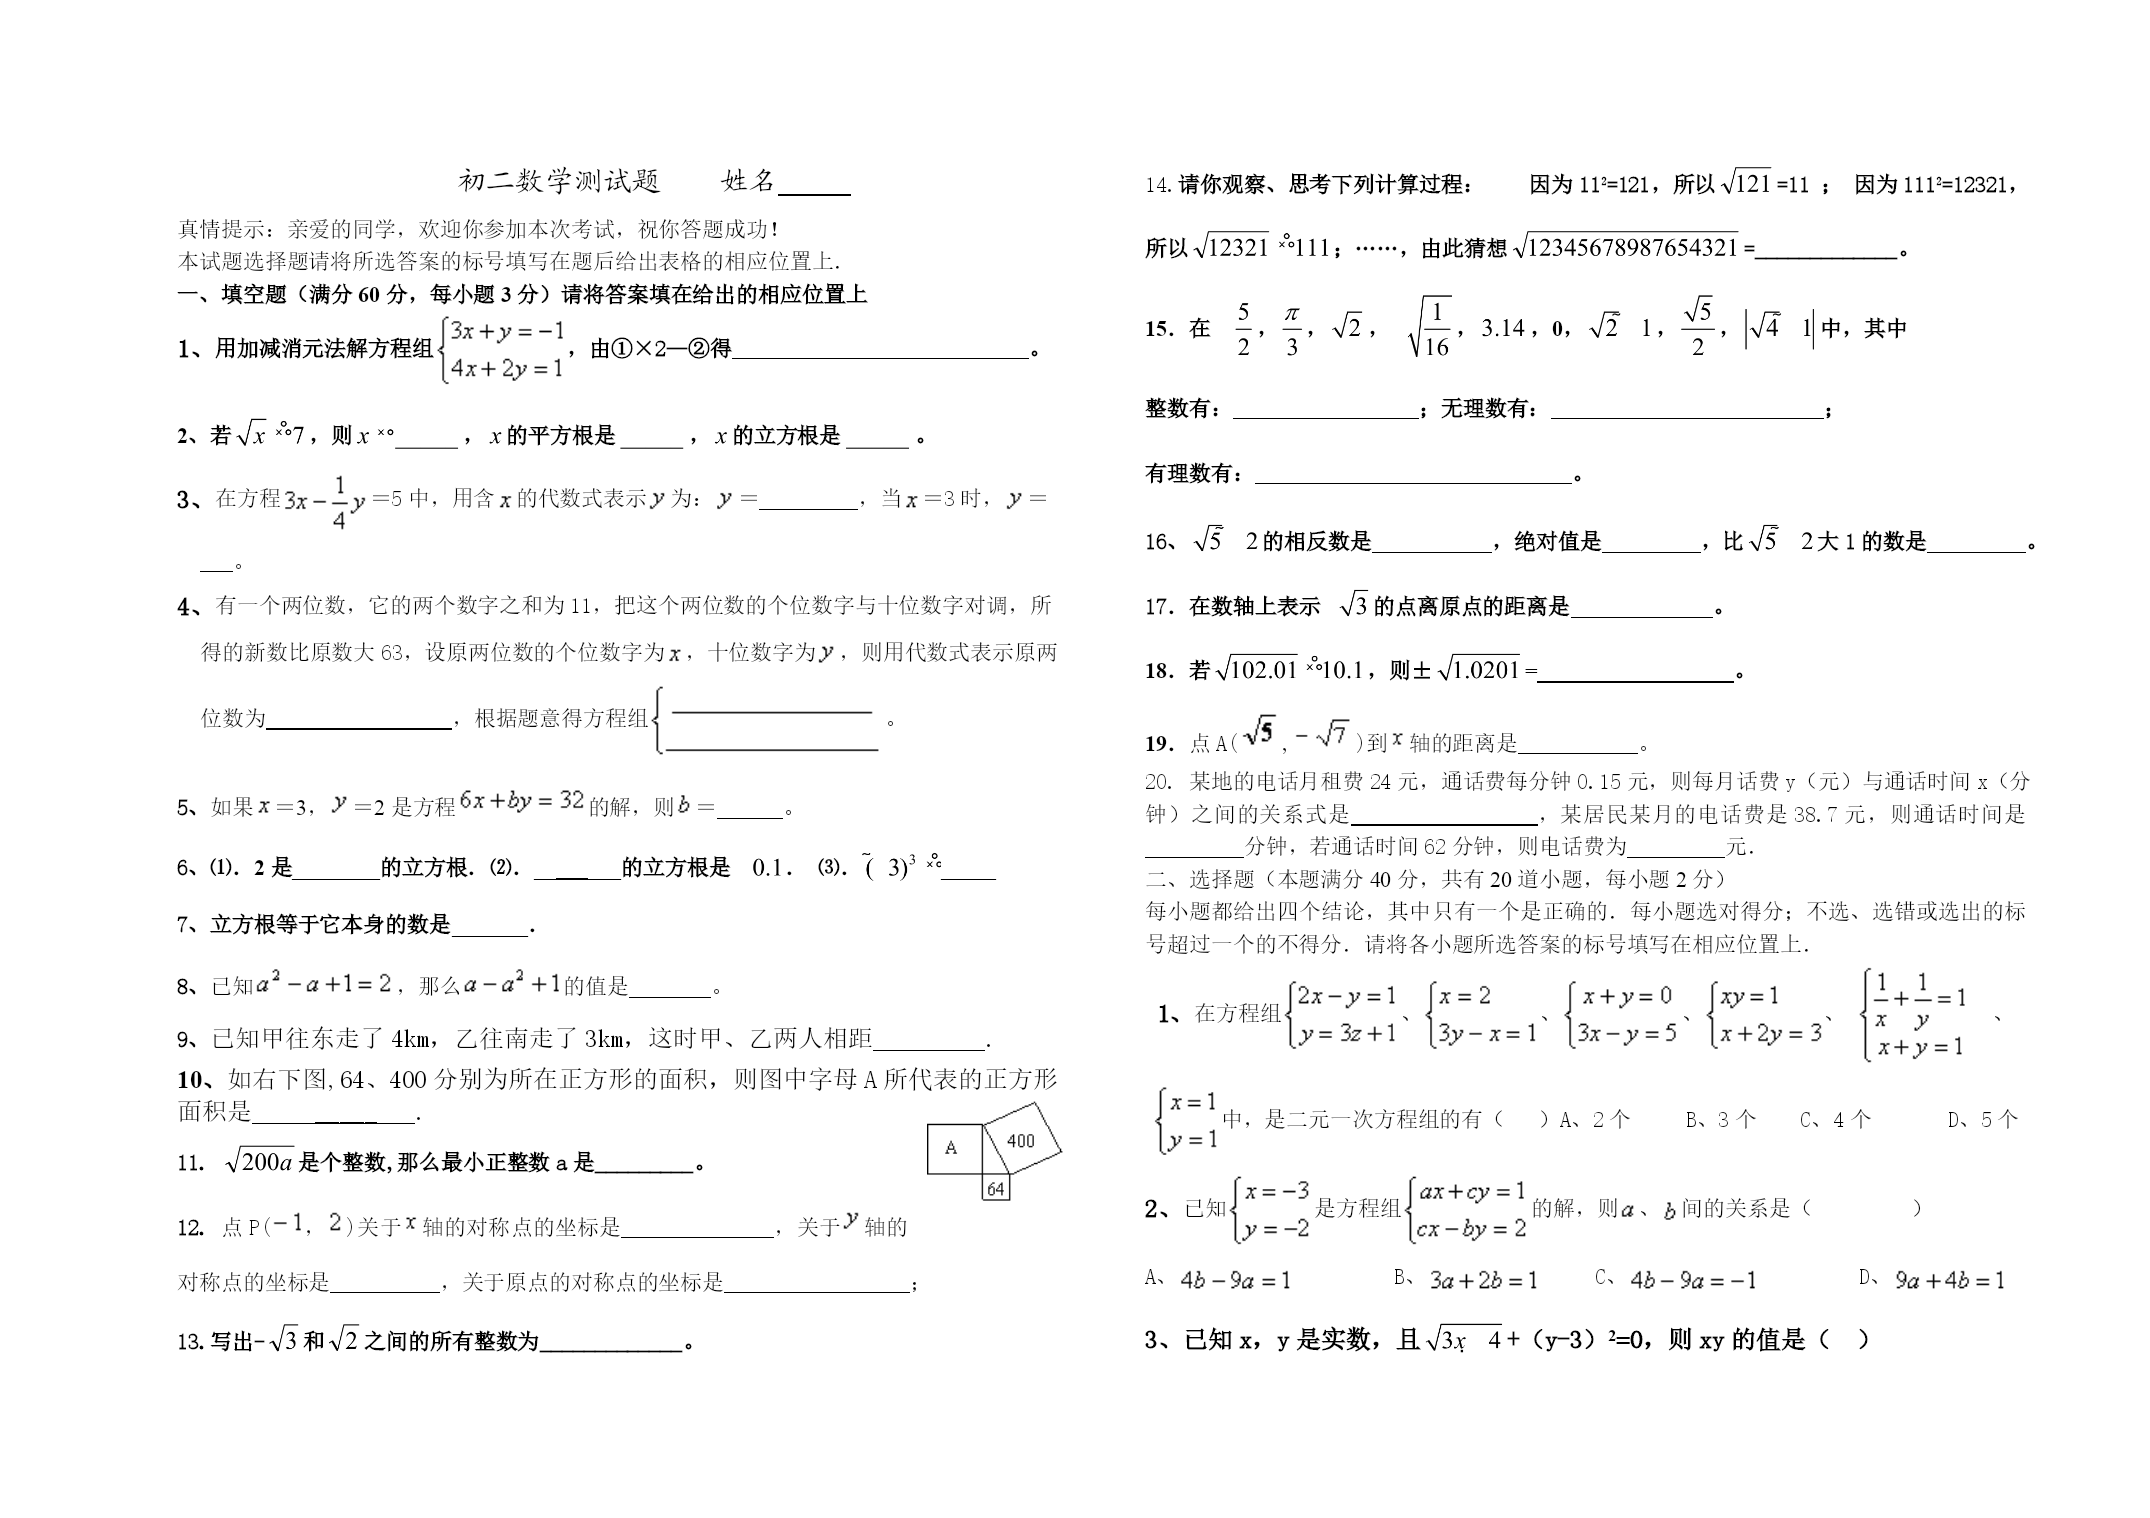 初二数学测试题 姓名_____
真情提示：亲爱的同学，欢迎你参加本次考试，祝你答题成功！
本试题选择题请将所选答案的标号填写在题后给出表格的相应位置上．
一、填空题（满分 60 分，每小题 3 分）请将答案填在给出的相应位置上
1、用加减消元法解方程组{3x+y=−1 4x+2y=1，由①×2—②得__________。
2、若√x ×°7，则 x ×°_____，x 的平方根是_____，x 的立方根是_____。
3、在方程3x−1/4 y＝5 中，用含 x 的代数式表示 y 为：y＝________，当 x＝3 时，y＝
___。
4、有一个两位数，它的两个数字之和为 11，把这个两位数的个位数字与十位数字对调，所
得的新数比原数大 63，设原两位数的个位数字为 x，十位数字为 y，则用代数式表示原两
位数为__________，根据题意得方程组{__________ __________。
5、如果 x＝3，y＝2 是方程 6x+by=32 的解，则 b＝_____。
6、⑴．2 是_______的立方根．⑵．_______的立方根是 0.1．⑶．~( 3)³ ×°_____
7、立方根等于它本身的数是______．
8、已知a²−a+1=2，那么a−a²+1的值是______。
9、已知甲往东走了 4km，乙往南走了 3km，这时甲、乙两人相距________．
10、如右下图,64、400 分别为所在正方形的面积，则图中字母 A 所代表的正方形
面积是__________．
A 400 64
11. √200a 是个整数,那么最小正整数 a 是________。
12. 点 P(−1，2)关于 x 轴的对称点的坐标是____________，关于 y 轴的
对称点的坐标是_________，关于原点的对称点的坐标是_______________；
13.写出-√3 和√2 之间的所有整数为____________。
14.请你观察、思考下列计算过程： 因为 11²=121，所以√121=11 ； 因为 111²=12321，
所以√12321 ×°111；……，由此猜想√12345678987654321=____________。
15．在 5/2，π/3，√2， √(1/16)，3.14，0，√2~ 1，√5/2，|√4~ 1|中，其中
整数有：______________；无理数有：____________________；
有理数有：________________________。
16、√5~ 2的相反数是_________，绝对值是________，比√5~ 2大 1 的数是________。
17．在数轴上表示 √3的点离原点的距离是___________。
18．若√102.01 ×°10.1，则±√1.0201=_______________。
19．点 A(√5,−√7)到 x 轴的距离是_________。
20．某地的电话月租费 24 元，通话费每分钟 0.15 元，则每月话费 y（元）与通话时间 x（分
钟）之间的关系式是______________，某居民某月的电话费是 38.7 元，则通话时间是
________分钟，若通话时间 62 分钟，则电话费为________元．
二、选择题（本题满分 40 分，共有 20 道小题，每小题 2 分）
每小题都给出四个结论，其中只有一个是正确的．每小题选对得分；不选、选错或选出的标
号超过一个的不得分．请将各小题所选答案的标号填写在相应位置上．
1、在方程组{2x−y=1 y=3z+1、{x=2 3y−x=1、{x+y=0 3x−y=5、{xy=1 x+2y=3、{1/x+1/y=1 x+y=1、
{x=1 y=1中，是二元一次方程组的有（ ）A、2 个 B、3 个 C、4 个 D、5 个
2、已知{x=−3 y=−2是方程组{ax+cy=1 cx−by=2的解，则a、b间的关系是（ ）
A、4b−9a=1 B、3a+2b=1 C、4b−9a=−1 D、9a+4b=1
3、已知 x，y 是实数，且√3x 4+（y-3）²=0，则 xy 的值是（ ）